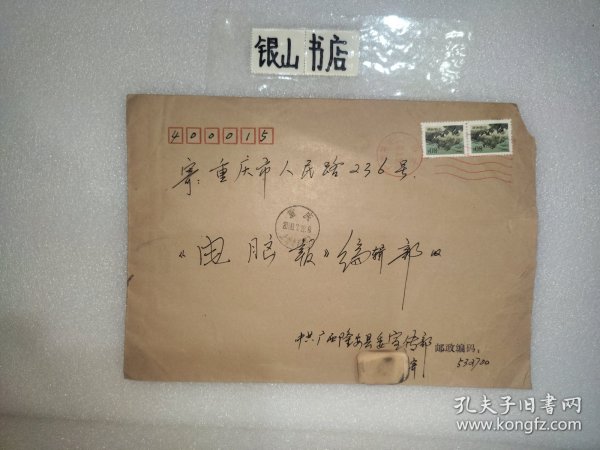 银山书店
400015
寄:重庆市人民路236号.
《电脑报》编辑部收
中共广西隆安县委宣传部
邮政编码:
532700
孔夫子旧书网
www.kongfz.com